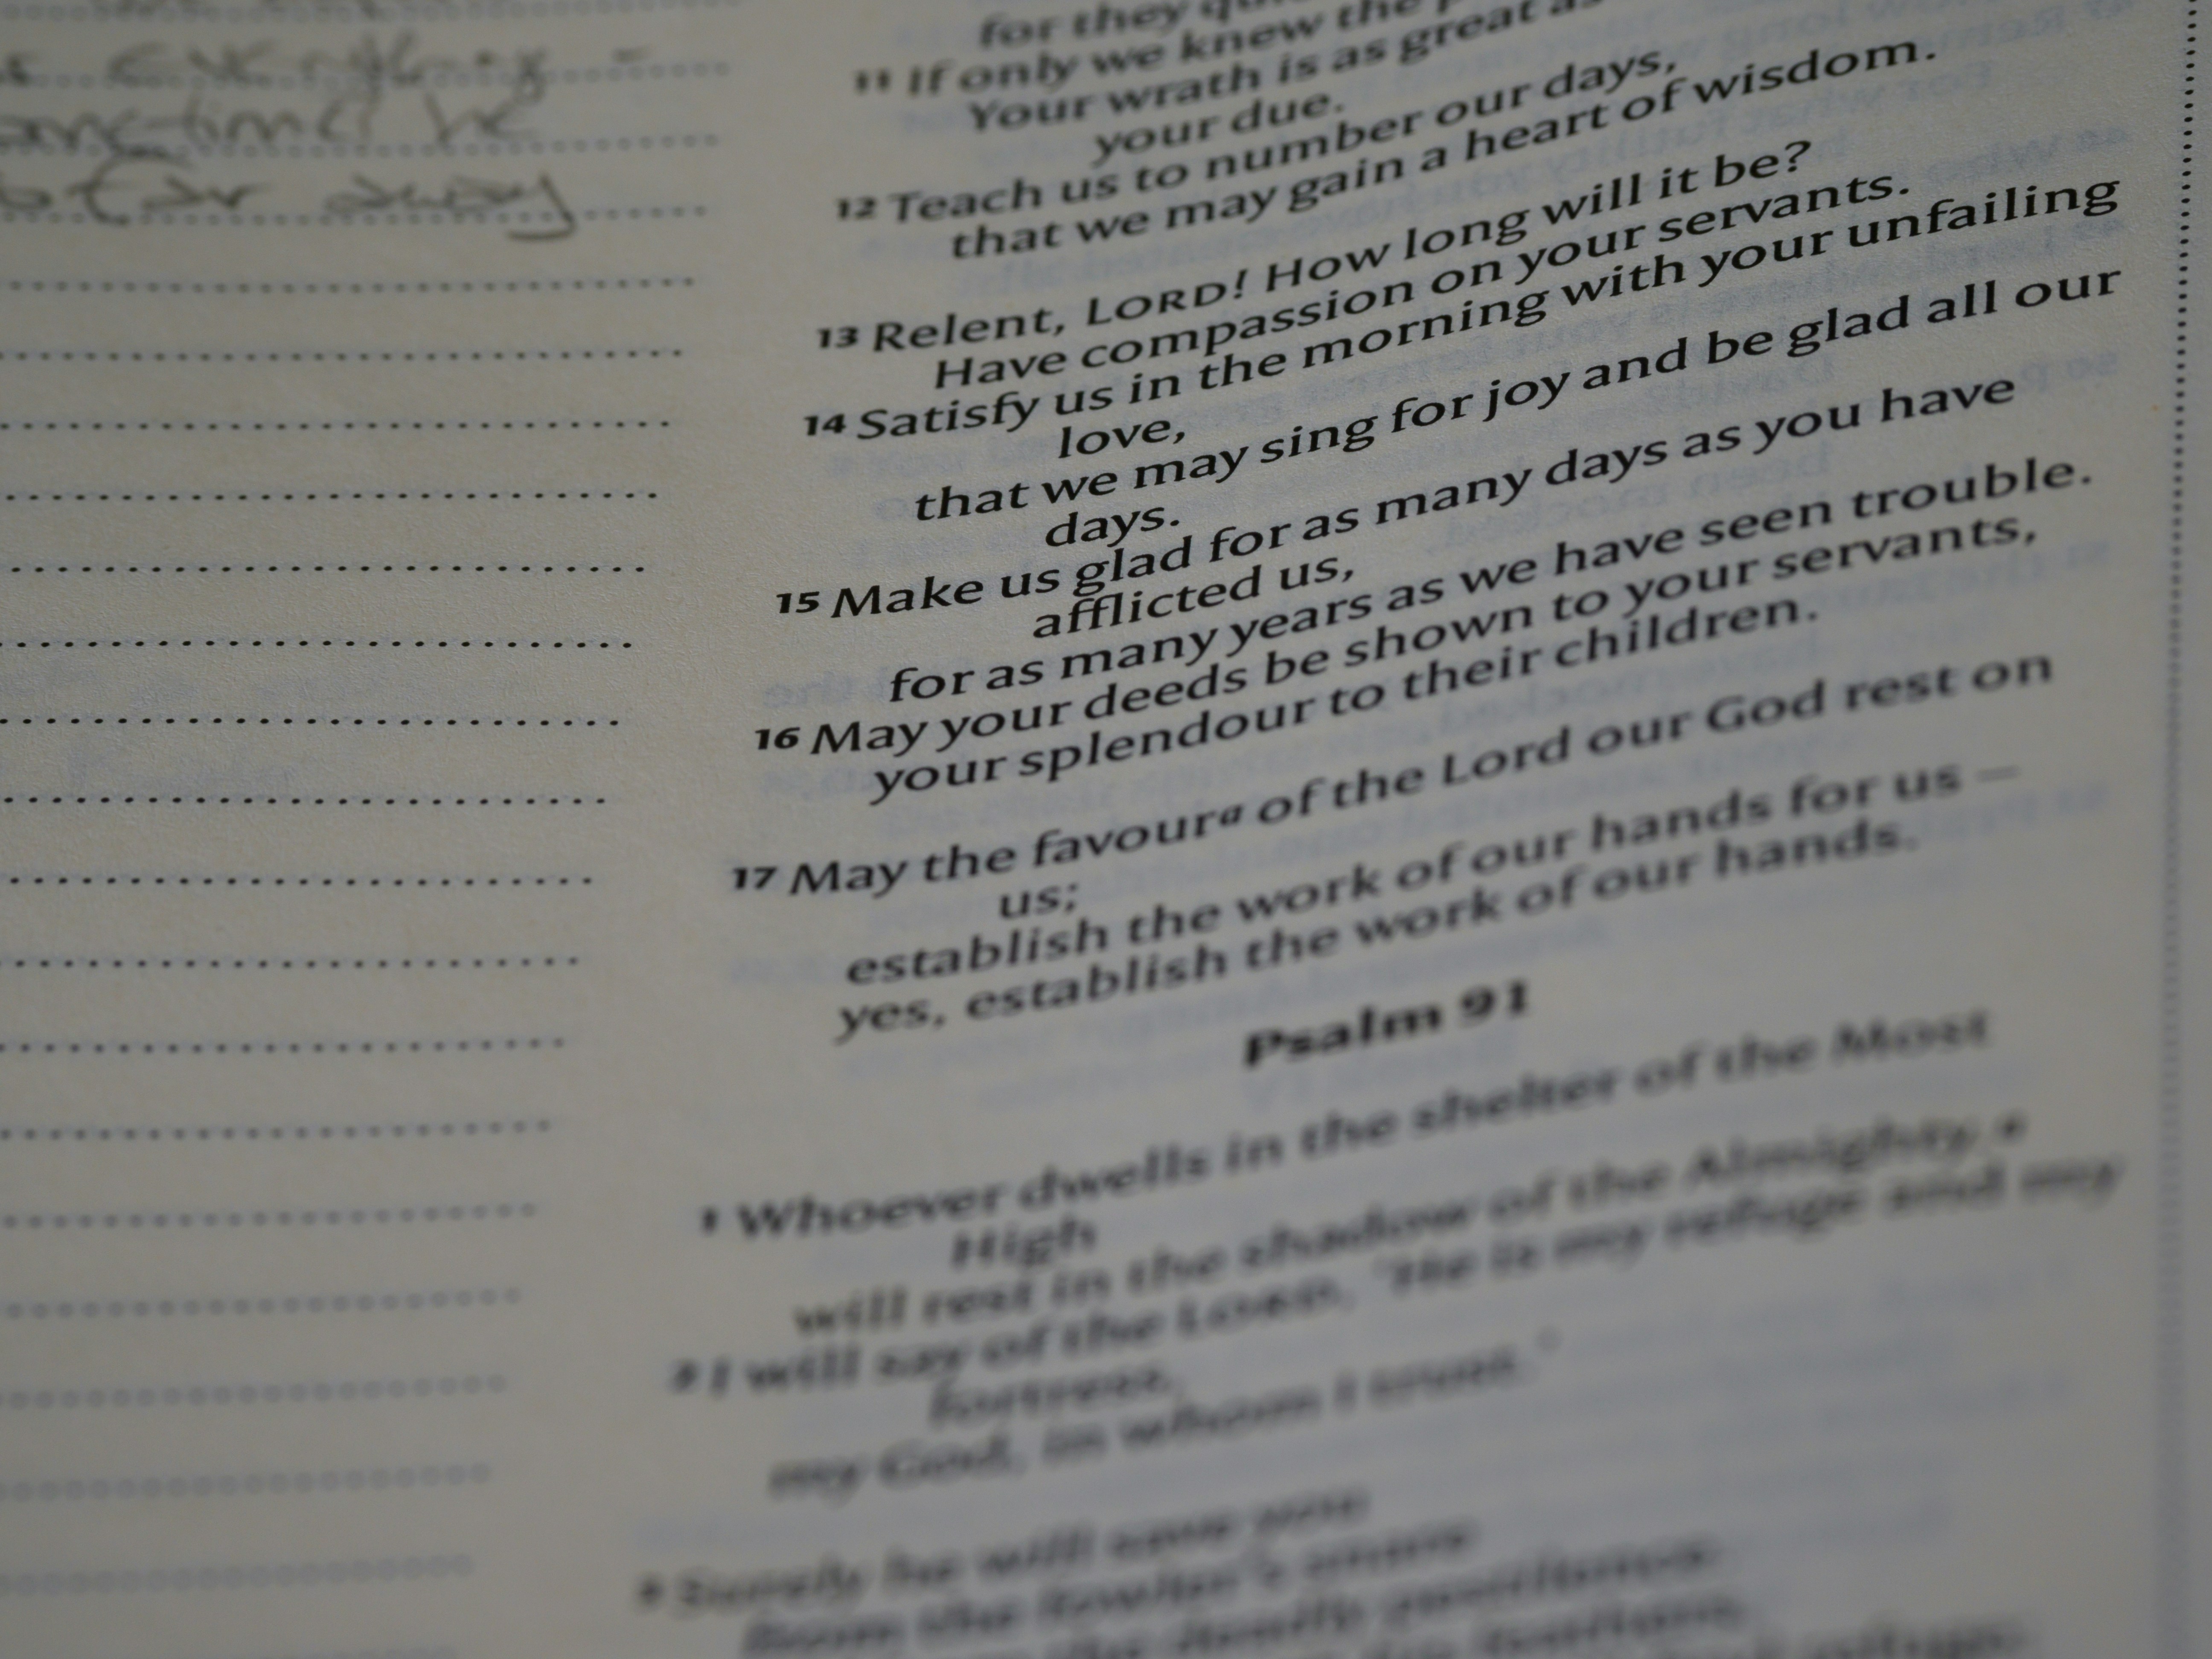 everything -
he
far away
for they
11 If only we knew the
Your wrath is as great as
your due.
12 Teach us to number our days,
that we may gain a heart of wisdom.
13 Relent, LORD! How long will it be?
Have compassion on your servants.
14 Satisfy us in the morning with your unfailing
love,
that we may sing for joy and be glad all our
days.
15 Make us glad for as many days as you have
afflicted us,
for as many years as we have seen trouble.
16 May your deeds be shown to your servants,
your splendour to their children.
17 May the favour a of the Lord our God rest on
us;
establish the work of our hands for us —
yes, establish the work of our hands.
Psalm 91
1 Whoever dwells in the shelter of the Most
High
will rest in the shadow of the Almighty. a
2 I will say of the LORD, 'He is my refuge and my
fortress,
my God, in whom I trust.'
3 Surely he will save you
from the fowler's snare